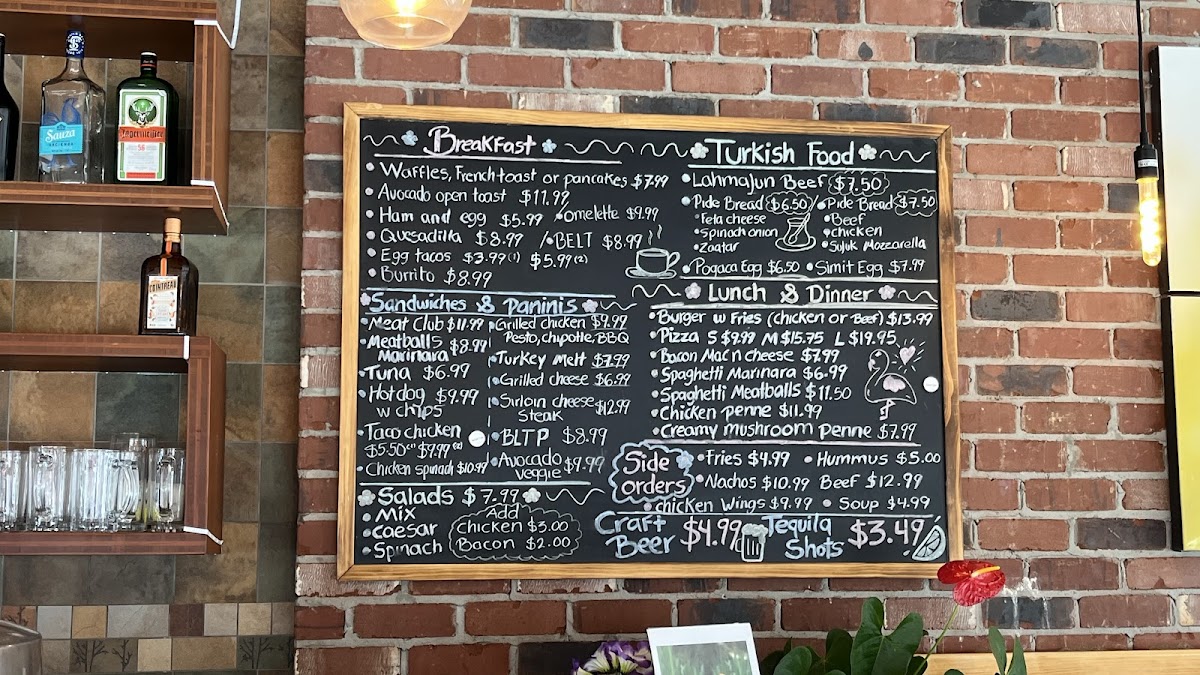 Sauza
HACIENDA
Jägermeister
56
COINTREAU
Breakfast
Waffles, French toast or pancakes $7.99
Avocado open toast $11.99
Ham and egg $5.99 Omelette $9.99
Quesadilla $8.99 / BELT $8.99
Egg tacos $3.99(1) $5.99(2)
Burrito $8.99
Sandwiches & Paninis
Meat Club $11.99
Meatballs $8.99
Marinara
Tuna $6.99
Hot dog $9.99
w chips
Taco chicken
$5.50(1) $9.99(2)
Chicken spinach $10.99
Grilled chicken $9.99
Pesto, chipotle, BBQ
Turkey Melt $7.99
Grilled cheese $6.99
Sirloin cheese $12.99
Steak
BLTP $8.99
Avocado $9.99
veggie
Salads $7.99
Mix
Caesar
Spinach
Add
Chicken $3.00
Bacon $2.00
Turkish Food
Lahmajun Beef $7.50
Pide Bread $6.50 / Pide Bread $7.50
Feta cheese
Spinach onion
Zaatar
Beef
Chicken
Sujuk Mozzarella
Pogaca Egg $6.50 Simit Egg $7.99
Lunch & Dinner
Burger w Fries (chicken or Beef) $13.99
Pizza S $9.99 M $15.75 L $19.95
Bacon Mac n cheese $7.99
Spaghetti Marinara $6.99
Spaghetti Meatballs $11.50
Chicken penne $11.99
Creamy mushroom penne $7.99
Side
orders
Fries $4.99 Hummus $5.00
Nachos $10.99 Beef $12.99
chicken Wings $9.99 Soup $4.99
Craft
Beer $4.99
Tequila
Shots $3.49